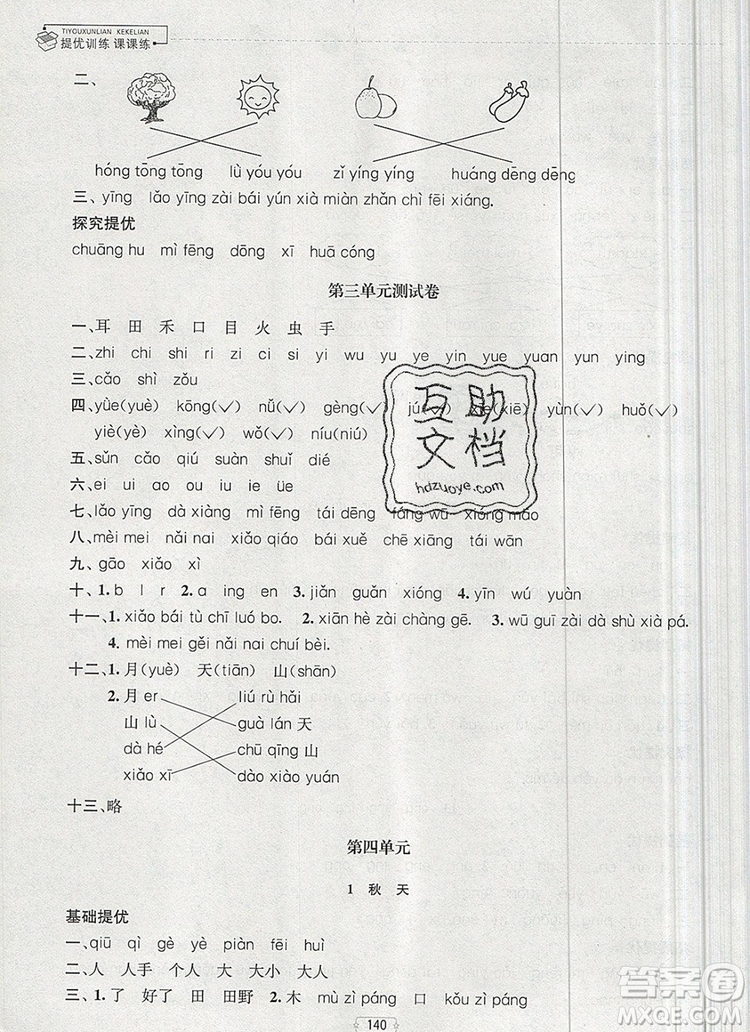 TIYOUXUNLIAN KEKELIAN
提优训练 课课练
二、
hóng tōng tōng lǜ yóu yóu zǐ yíng yíng huáng dēng dēng
三、yīng lǎo yīng zài bái yún xià miàn zhǎn chì fēi xiáng.
探究提优
chuāng hu mì fēng dōng xī huā cóng
第三单元测试卷
一、耳 田 禾 口 目 火 虫 手
二、zhi chi shi ri zi ci si yi wu yu ye yin yue yuan yun ying
三、cǎo shì zǒu
四、yùe(yuè) kōng(✓) nǚ(✓) gèng(✓) jú(✓) xīe(xiē) yùn(✓) huǒ(✓)
yiè(yè) xìng(✓) wǒ(✓) níu(niú)
五、sǔn cǎo qiú suàn shuǐ dié
六、ei ui ao ou iu ie üe
七、lǎo yīng dà xiàng mì fēng tái dēng fáng wū xióng māo
八、mèi mei nǎi nai xiǎo qiáo bái xuě chē xiāng tái wān
九、gāo xiǎo xì
十、1. b l r 2. a ing en 3. jiǎn guǎn xióng 4. yīn wú yuàn
十一、1. xiǎo bái tù chī luó bo. 2. xiān hè zài chàng gē. 3. wū guī zài dà shù xià pá.
4. mèi mei gěi nǎi nai chuí bèi.
十二、1. 月(yuè) 天(tiān) 山(shān)
2. 月 er liú rù hǎi
山 lù guà lán 天
dà hé chū qīng 山
xiǎo xī dào xiào yuán
十三、略
第四单元
1 秋 天
基础提优
一、qiū qì gè yè piàn fēi huì
二、人 人手 个人 大 大山 大人
三、1. 了 好了 田 田野 2. 木 mù zì páng 口 kǒu zì páng
140
互助
文档
hdzuoye.com
答案圈
MXQE.COM